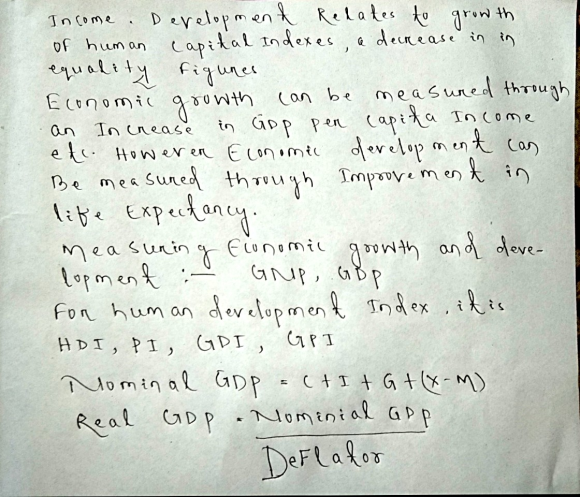 Income. Development Relates to growth
of human capital Indexes, a decrease in in
equality figures
Economic growth can be measured through
an Increase in GDP per capita Income
etc. However Economic development can
Be measured through Improvement in
life Expectancy.
Measuring Economic growth and deve-
lopment :- GNP, GDP
For human development Index, it is
HDI, PI, GDI, GPI
Nominal GDP = C+I+G+(X-M)
Real GDP = Nominial GDP
DeFlator